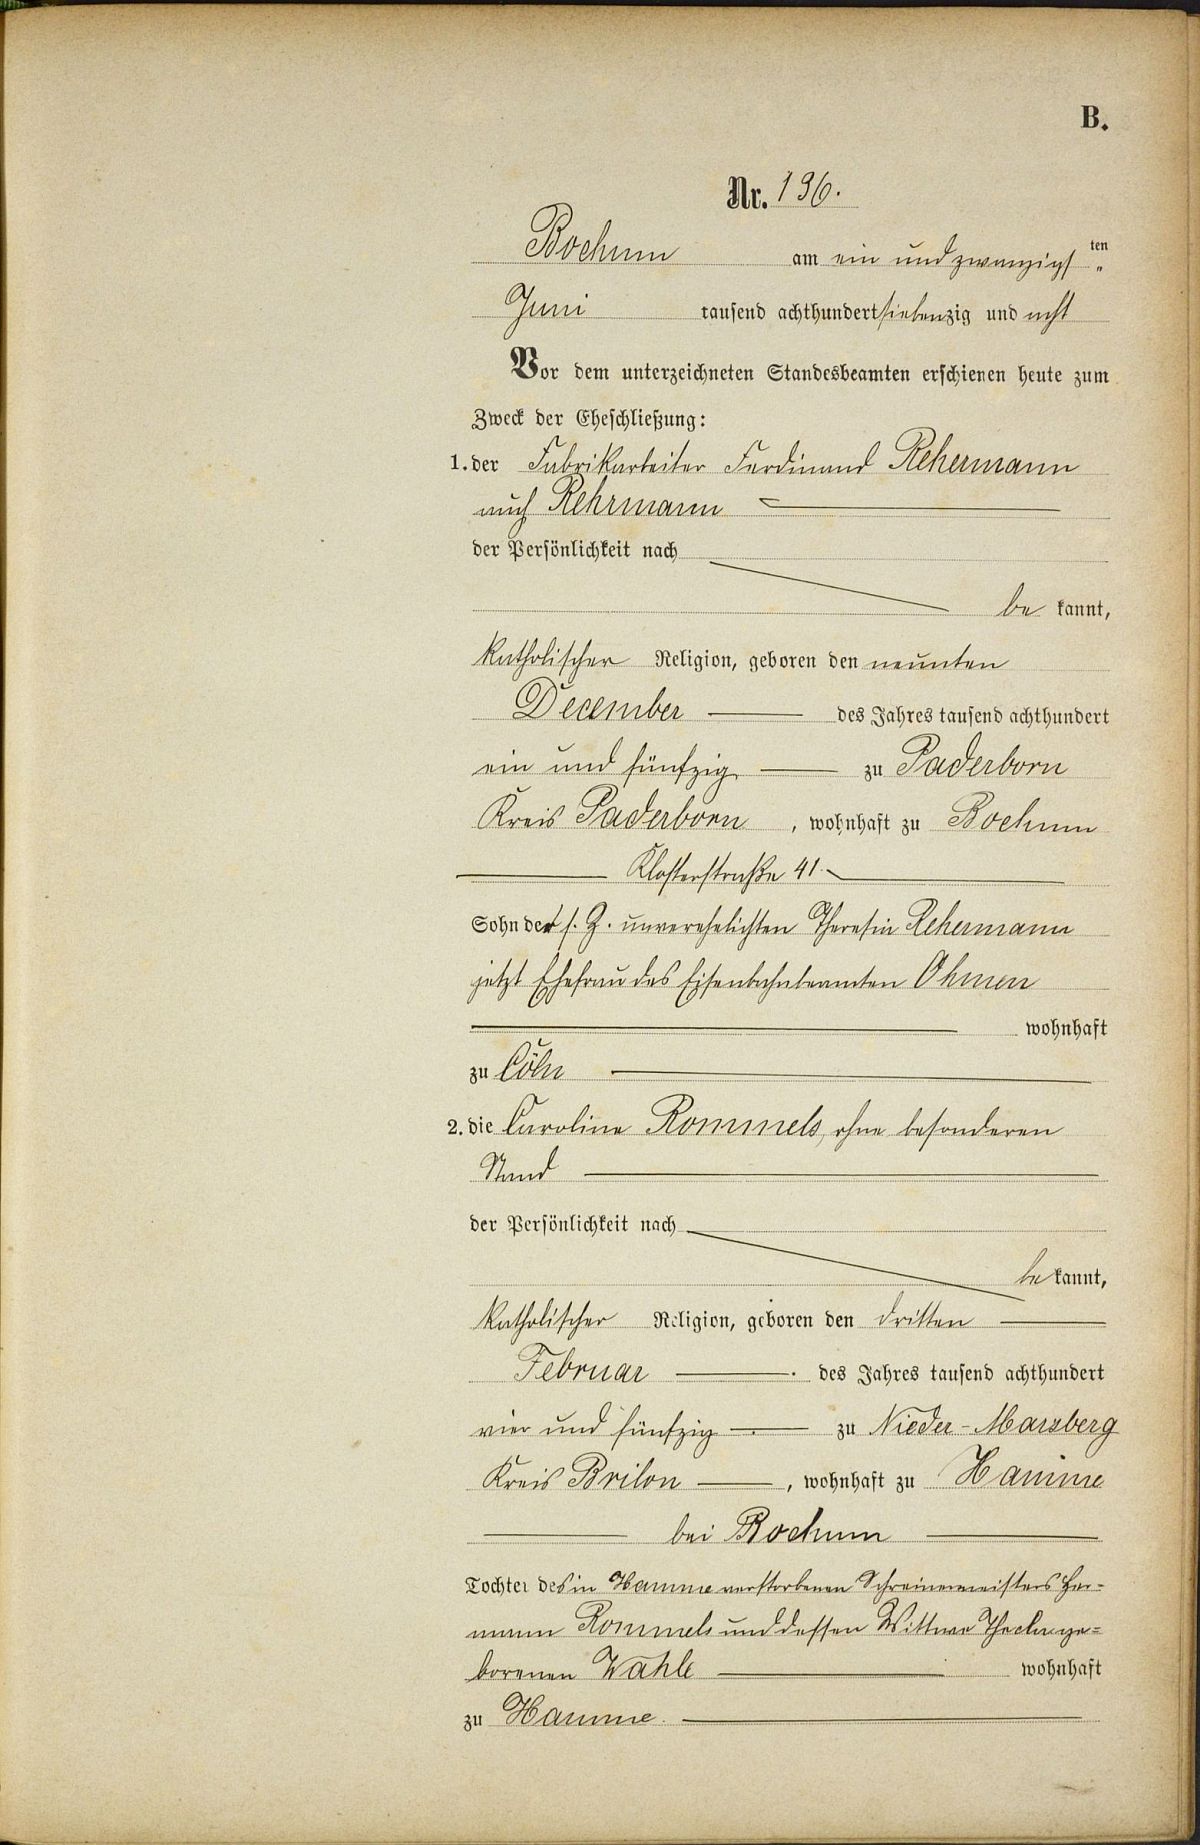 B.
Nr. 196.
Bochum am ein und zwanzigsten
Juni tausend achthundert siebenzig und acht
Vor dem unterzeichneten Standesbeamten erschienen heute zum
Zweck der Eheschließung:
1. der Fabrikarbeiter Ferdinand Rehermann
auch Rehrmann
der Persönlichkeit nach
be kannt,
katholischer Religion, geboren den neunten
December des Jahres tausend achthundert
ein und fünfzig zu Paderborn
Kreis Paderborn, wohnhaft zu Bochum
Klosterstraße 41.
Sohn der s. Z. unverehelichten Theresia Rehermann
jetzt Ehefrau des Eisenbahnbeamten Ohmen
wohnhaft
zu Cöln
2. die Caroline Rommels, ohne besonderen
Stand
der Persönlichkeit nach
be kannt,
katholischer Religion, geboren den dritten
Februar des Jahres tausend achthundert
vier und fünfzig zu Nieder-Marsberg
Kreis Brilon, wohnhaft zu Hamme
bei Bochum
Tochter des in Hamme verstorbenen Schreinermeisters Her=
mann Rommels und dessen Wittwe Thecla ge=
borenen Wahle wohnhaft
zu Hamme.